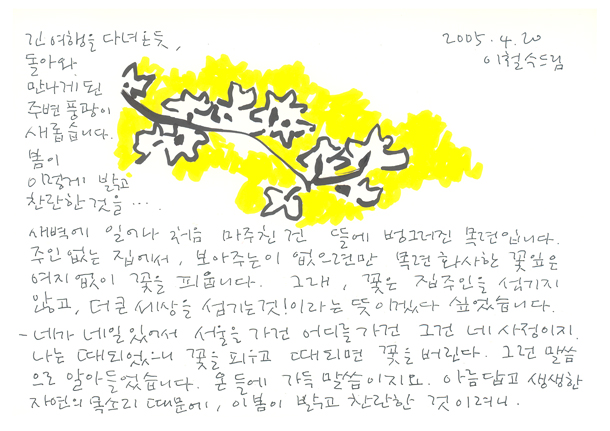 긴 여행을 다녀온듯,
돌아와
만나게 된
주변 풍광이
새롭습니다.
봄이
이렇게 밝고
찬란한 것을 ···
2005. 4. 20
이철수드림
새벽에 일어나 처음 마주친 건 뜰에 벙그러진 목련입니다.
주인 없는 집에서, 보아주는이 없으련만 목련 화사한 꽃잎은
여지 없이 꽃을 피웁니다. 그래, 꽃은 집주인을 섬기지
않고, 더 큰 세상을 섬기는것!이라는 뜻이겠다 싶었습니다.
- 네가 네일 있어서 서울을 가건 어디를 가건 그건 네 사정이지.
나는 때되었으니 꽃을 피우고 때되면 꽃을 버린다. 그런 말씀
으로 알아들었습니다. 온 들에 가득 말씀이지요. 아름답고 생생한
자연의 목소리 때문에, 이 봄이 밝고 찬란한 것이려니.